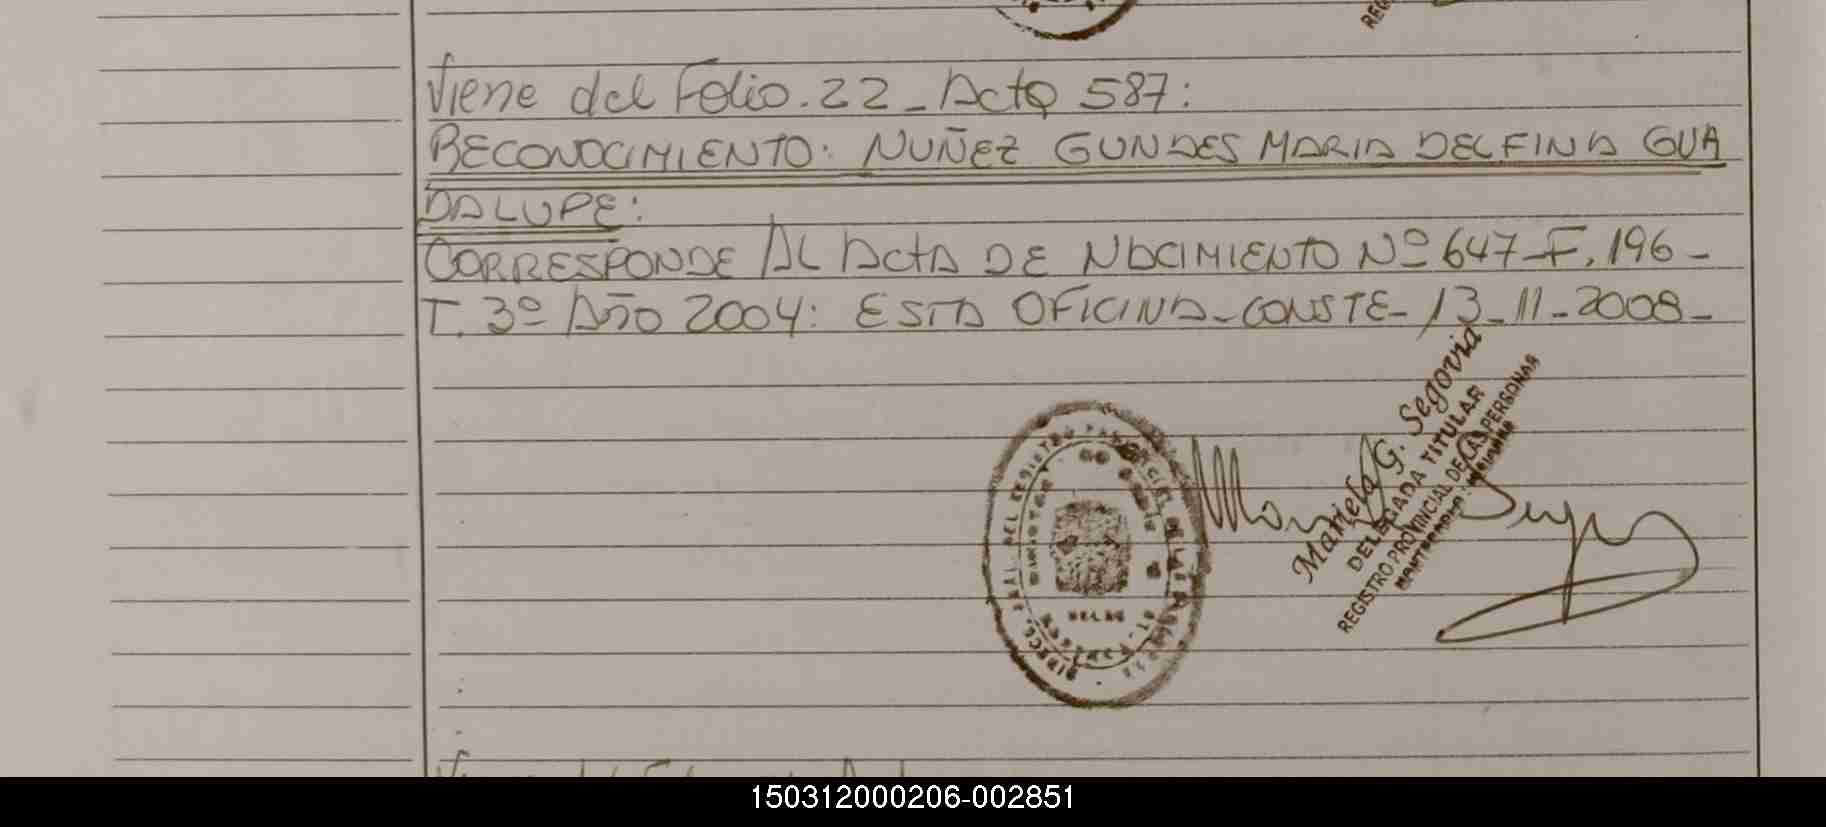 REG
Viene del Folio. 22 - Acta 587:
RECONOCIMIENTO: NUÑEZ GUNDES MARIA DELFINA GUA
DALUPE:
CORRESPONDE AL ACTA DE NACIMIENTO Nº 647-F. 196-
T. 3º Año 2004: ESTA OFICINA-CONSTE-13-11-2008-
Mariela G. Segovia
DELEGADA TITULAR
REGISTRO PROVINCIAL DE LAS PERSONAS
150312000206-002851